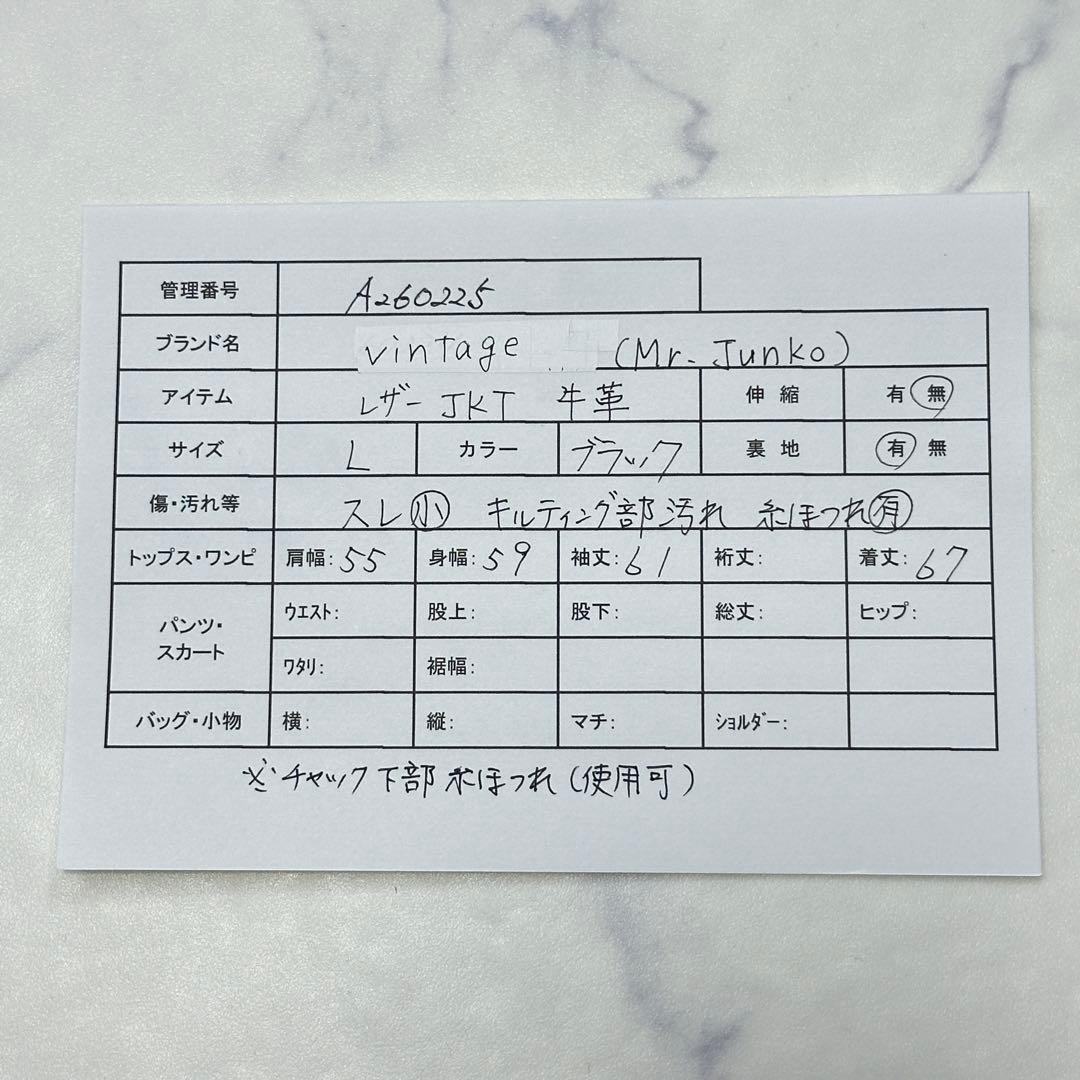 管理番号 A260225
ブランド名 vintage (Mr. Junko)
アイテム レザー JKT 牛革 伸縮 有 無
サイズ L カラー ブラック 裏地 有 無
傷・汚れ等 スレ小 キルティング部汚れ 糸ほつれ有
トップス・ワンピ 肩幅:55 身幅:59 袖丈:61 裄丈: 着丈:67
パンツ・スカート ウエスト: 股上: 股下: 総丈: ヒップ:
ワタリ: 裾幅:
バッグ・小物 横: 縦: マチ: ショルダー:
※チャック下部 糸ほつれ(使用可)